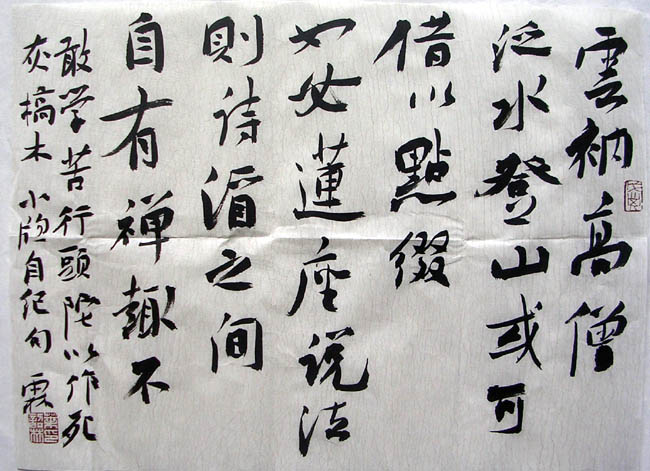 雲衲高僧
泛水登山或可
借以點綴
如必蓮座說法
則詩酒之间
自有禅趣不
敢学苦行頭陀以作死
灰槁木 小窗自纪句 霖